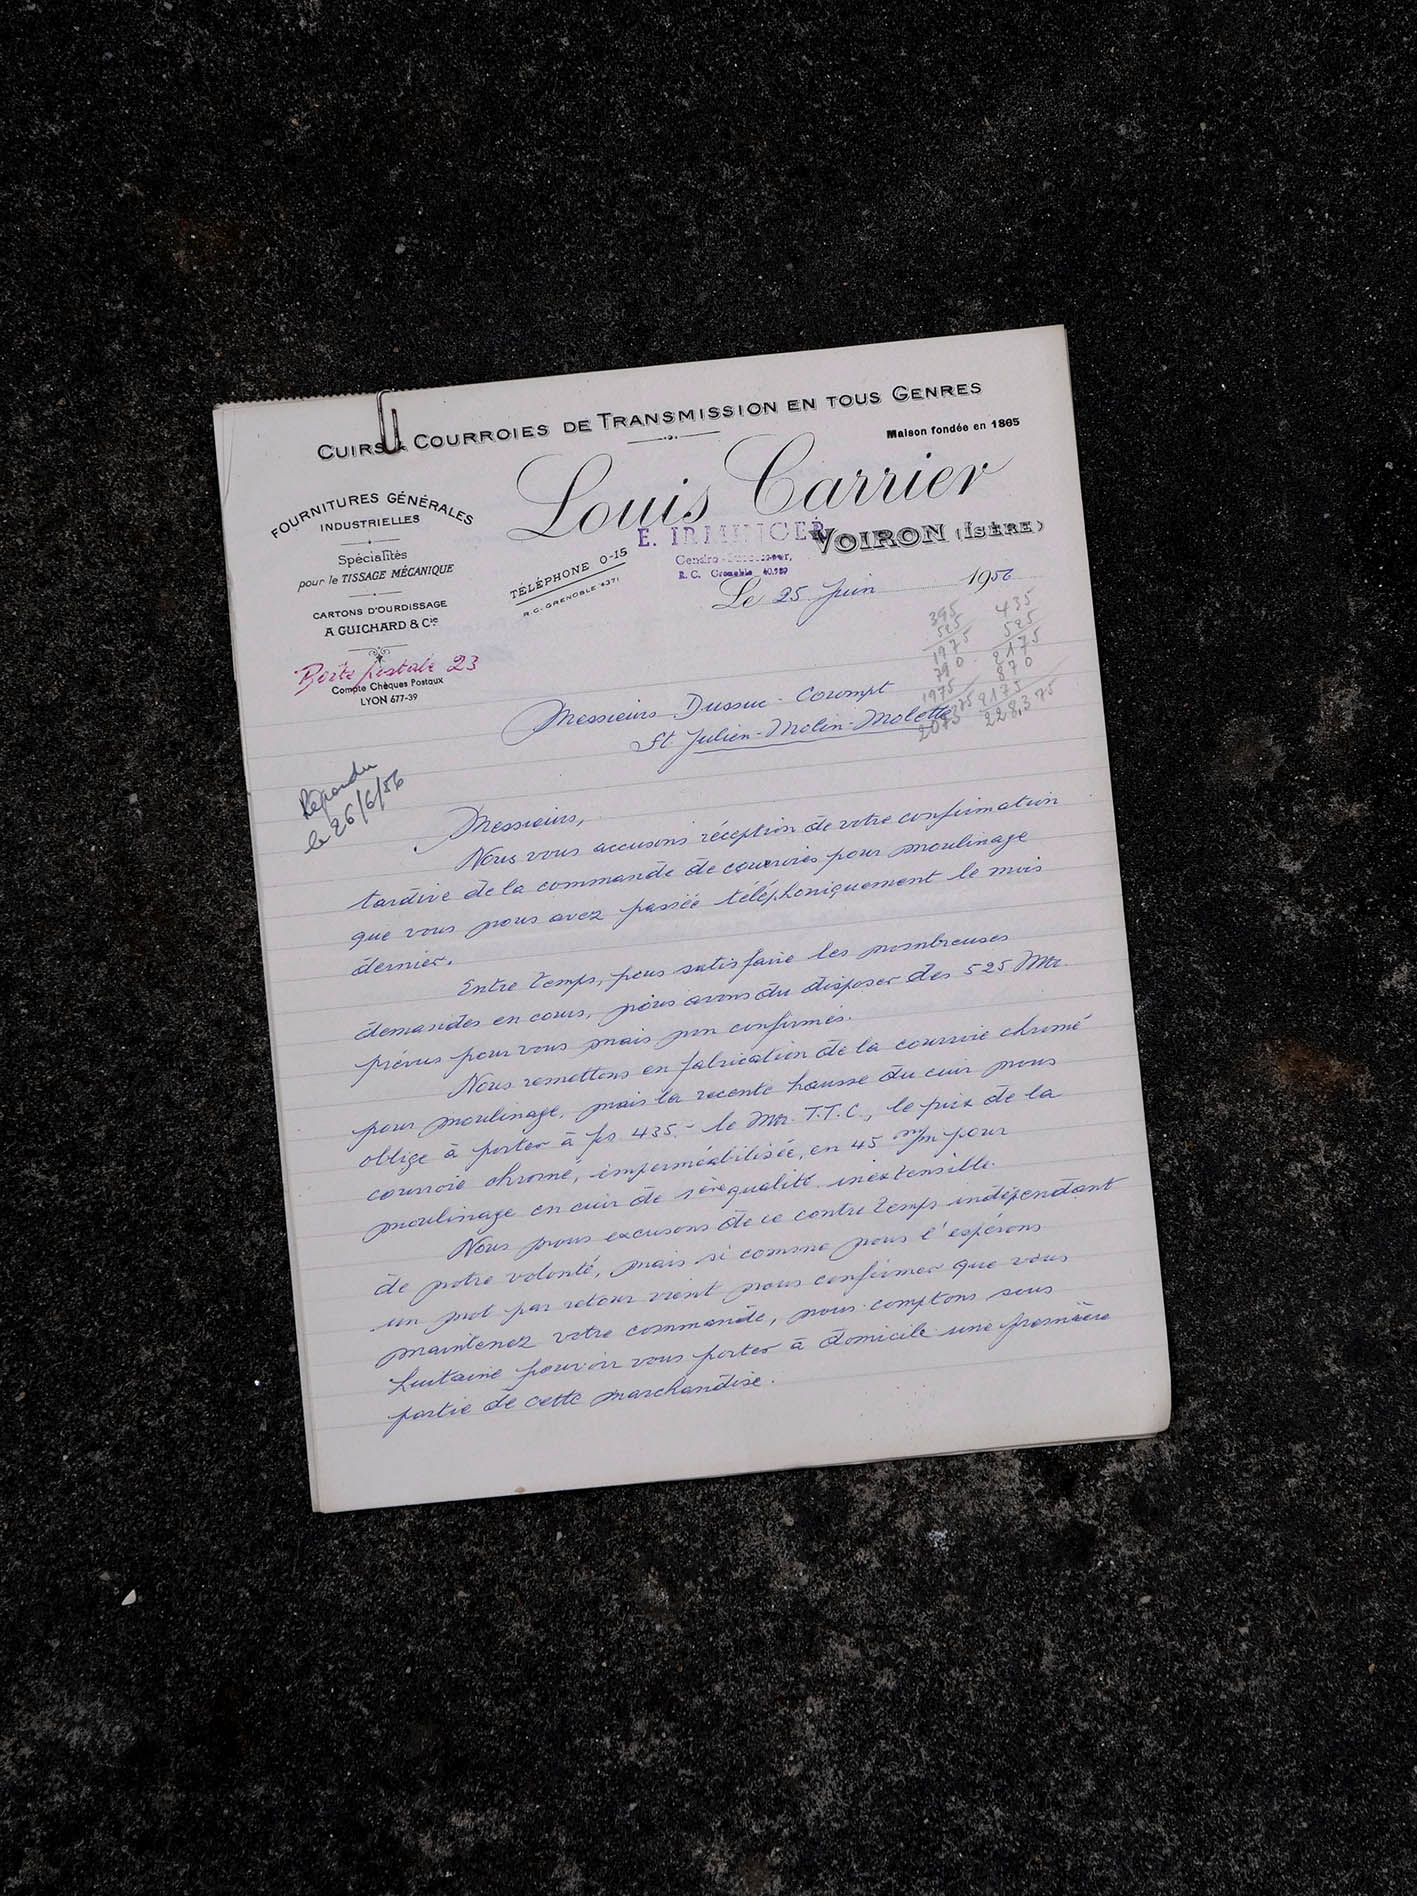 CUIRS & COURROIES DE TRANSMISSION EN TOUS GENRES
Maison fondée en 1865
Louis Carrier
FOURNITURES GÉNÉRALES
INDUSTRIELLES
Spécialités
pour le TISSAGE MÉCANIQUE
CARTONS D'OURDISSAGE
A GUICHARD & Cie
Boîte postale 23
Compte Chèques Postaux
LYON 677-39
TÉLÉPHONE 0-15
R.C. GRENOBLE 4371
E. IRMINGER
Gendre-Successeur,
R. C. Grenoble
VOIRON (ISÈRE)
Le 25 Juin 1956
395
525
1975
790
1975
435
525
2175
870
2175
228,375
Messieurs Dussuc-Corompt
St Julien-Molin-Molette
Répondu
le 26/6/56
Messieurs,
Nous vous accusons réception de votre confirmation
tardive de la commande de courroies pour moulinage
que vous nous avez passée téléphoniquement le mois
dernier.
Entre temps, pour satisfaire les nombreuses
demandes en cours, nous avons du disposer des 525 Mtr.
prévus pour vous mais non confirmés.
Nous remettons en fabrication de la courroie chromé
pour moulinage, mais la recente hausse du cuir nous
oblige à porter à frs 435.- le Mtr. T.T.C., le prix de la
courroie chromé, imperméabilisée, en 45 m/m pour
moulinage en cuir de 1ère qualité inextensible.
Nous nous excusons de ce contre temps indépendant
de notre volonté, mais si comme nous l'espérons
un mot par retour vient nous confirmer que vous
maintenez votre commande, nous comptons sous
huitaine pouvoir vous porter à domicile une première
partie de cette marchandise.